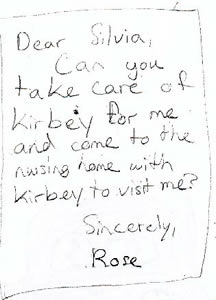 Dear Silvia,
Can you
take care of
kirbey for me
and come to the
nusing home with
kirbey to visit me?
Sincerely,
Rose